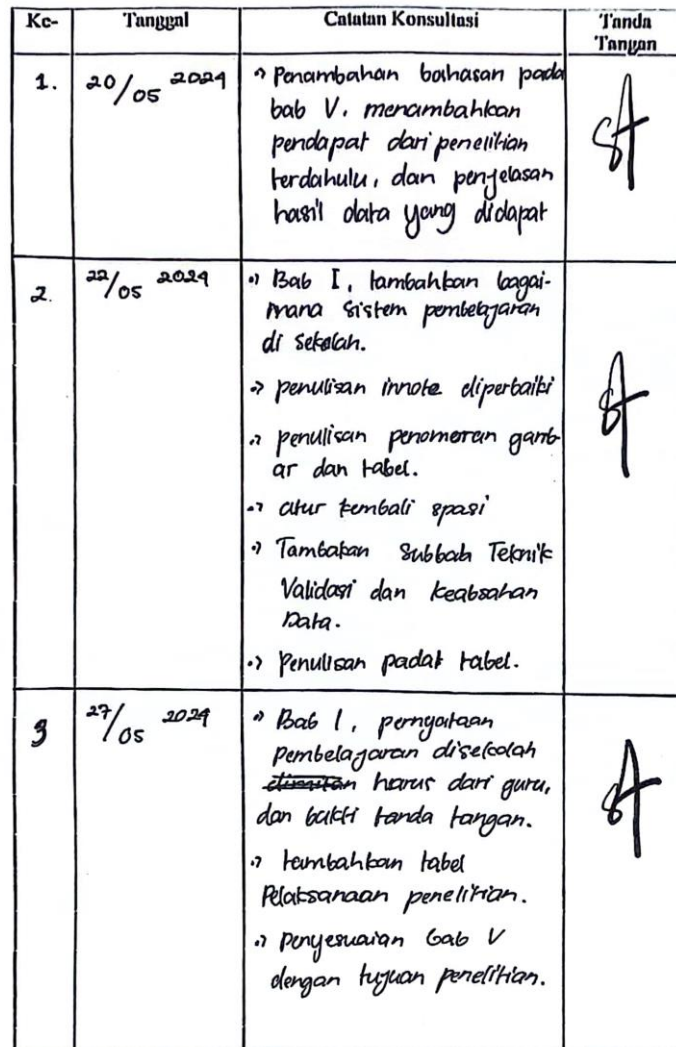 Ke- Tanggal Catatan Konsultasi Tanda
Tangan
1. 20/05 2024 Penambahan bahasan pada
bab V. menambahkan
pendapat dari penelitian
terdahulu, dan penjelasan
hasil data yang didapat
2. 22/05 2024 Bab I, tambahkan bagai-
mana sistem pembelajaran
di sekolah.
penulisan innote diperbaiki
penulisan penomeran gamb-
ar dan tabel.
atur kembali spasi
Tambakan Subbab Teknik
Validasi dan keabsahan
Data.
Penulisan padat tabel.
3 27/05 2024 Bab I, pernyataan
Pembelajaran disekolah
harus dari guru,
dan bukti tanda tangan.
tambahkan tabel
Pelaksanaan penelitian.
Penyesuaian bab V
dengan tujuan penelitian.